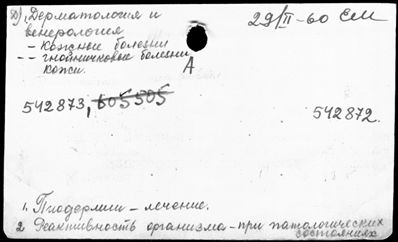 Д) Дерматология и 29/II-60 ЕМ
венерология
- Кожные болезни
-- гнойничковые болезни
кожи. А
542873, 605505 542872.
1. Пиодермии - лечение.
2. Реактивность организма - при патологических
состояниях